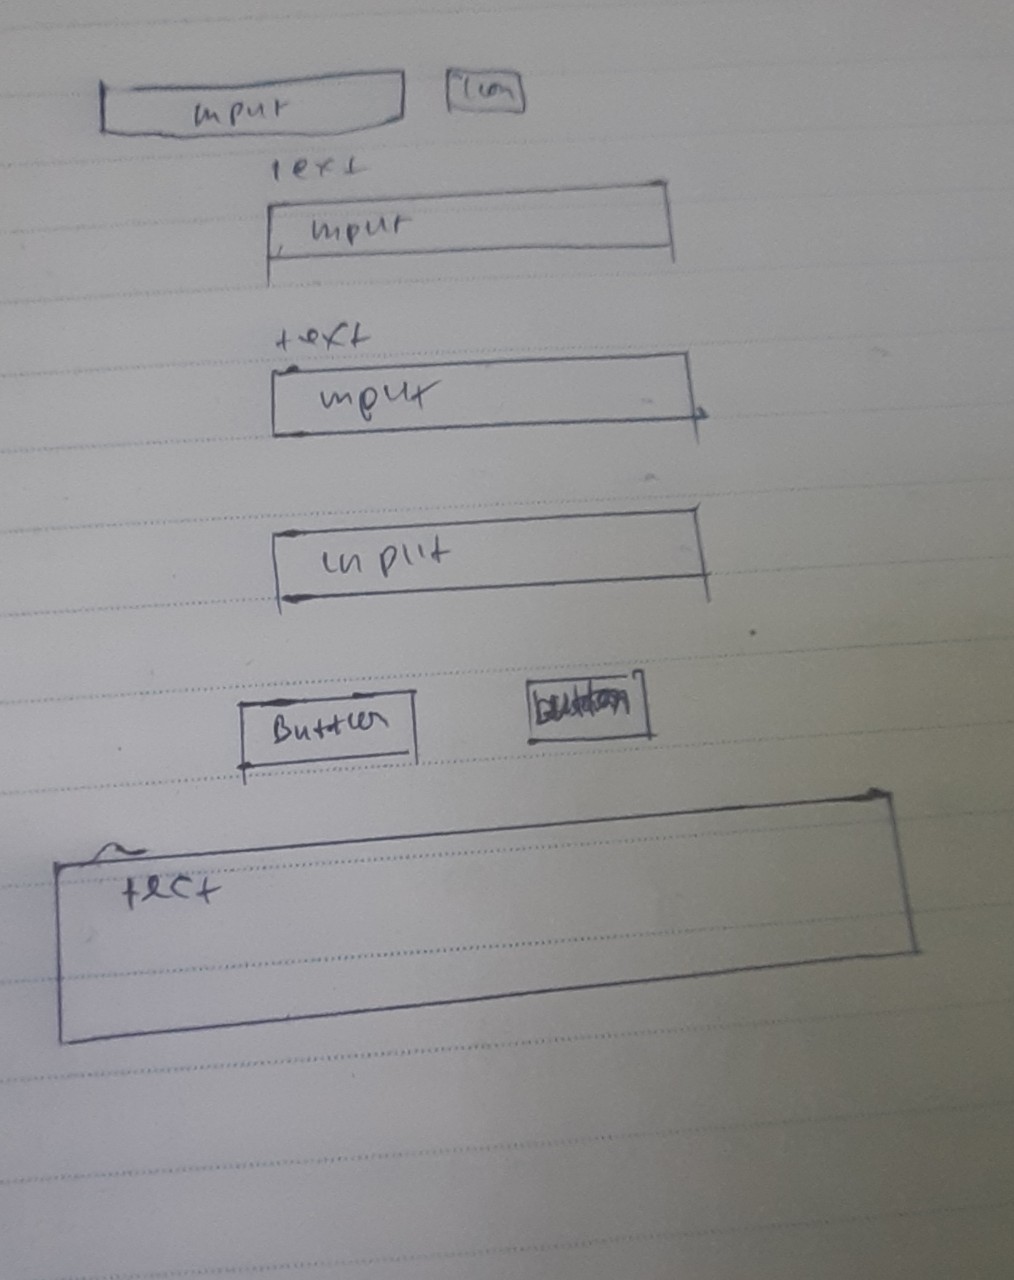 input
icon
text
input
text
input
input
Button
button
text